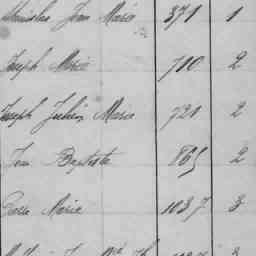 Stanislas Jean Marie 371 1
Joseph Marie 710 2
Joseph Julien Marie 721 2
Jean Baptiste 865 2
Marie 1037 3